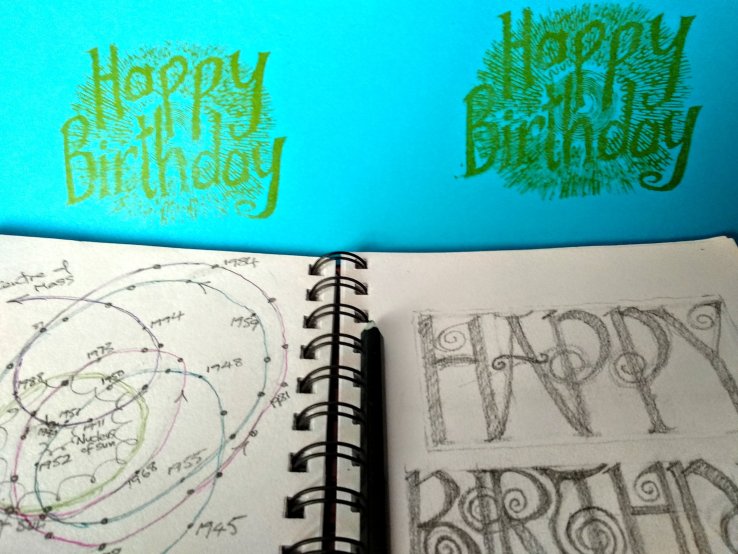 Happy
Birthday
Happy
Birthday
Centre of
Mass
1984
1974
1957
1978
1948
1981
1952
Nucleus
of sun
1968
1955
1945
HAPPY
BIRTHD